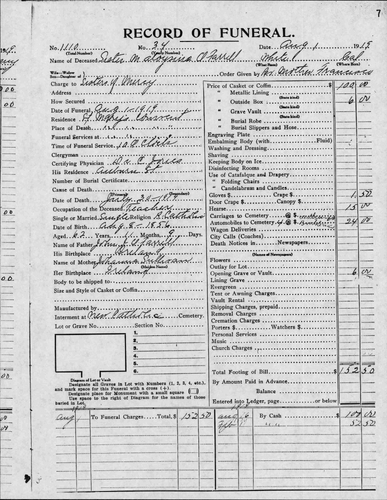 7
RECORD OF FUNERAL.
No. 1110 34 Date Aug 1 1919
Name of Deceased Sister M Aloysius O'Farrell White Cal
Charge to Sisters of Mercy Order Given by Rev Mother
Address
How Secured
Date of Funeral Aug 1 - 1919
Residence St Marys Convent
Place of Death
Funeral Services at
Time of Funeral Service, 10 O'Clock
Clergyman
Certifying Physician
His Residence
Number of Burial Certificate
Cause of Death
Date of Death July 30 - 1919
Occupation of the Deceased Teacher
Single or Married Single Religion Catholic
Date of Birth
Aged Years Months Days
Name of Father John O'Farrell
His Birthplace Ireland
Name of Mother Johanna Sullivan
Her Birthplace Ireland
Body to be shipped to
Size and Style of Casket or Coffin
Manufactured by
Interment at New Catholic Cemetery.
Lot or Grave No. Section No.
Diagram of Lot or Vault
Designate all Graves in Lot with Numbers (1, 2, 3, 4, etc.), and mark space for this Funeral with a cross (+)
Designate place for Monument with a small square □
Use space to the right of Diagram for the names of those buried in Lot.
Price of Casket or Coffin 100 00
" Metallic Lining
" Outside Box 6 00
" Grave Vault
" Burial Robe
" Burial Slippers and Hose
Engraving Plate
Embalming Body (with Fluid)
Washing and Dressing.
Shaving
Keeping Body on Ice
Disinfecting Rooms
Use of Catafalque and Drapery
" Folding Chairs
" Candelabrum and Candles
Gloves 1 50
Door Crape Candy
Hearse 15 00
Carriages to Cemetery
Automobiles to Cemetery 24 00
Wagon Deliveries
City Calls (Coaches)
Death Notices in Newspapers
Flowers
Outlay for Lot
Opening Grave or Vault 6 00
Lining Grave
Evergreen
Tent or Awning Charges
Vault Rental
Shipping Charges, prepaid
Removal Charges
Cremation Charges
Porters $ Watchers $
Personal Services
Music
Church Charges
Total Footing of Bill $ 152 50
By Amount Paid in Advance
Balance
Entered into Ledger, page or below.
Aug To Funeral Charges Total, $ 152 50 Aug By Cash 100 00
52 50